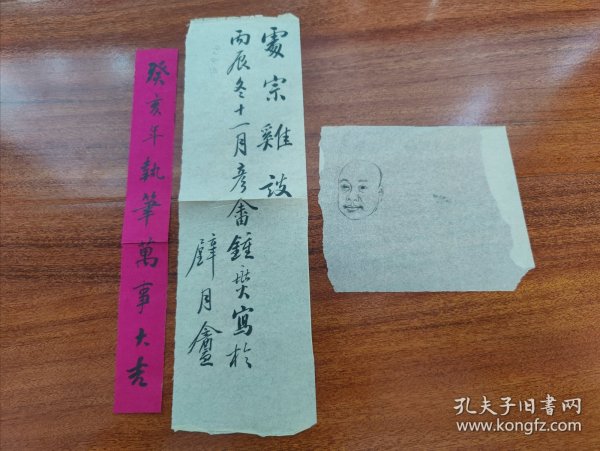 癸亥年執筆萬事大吉
處宗雞談
丙辰冬十一月彥畬鍾文寫於
辟月盦
孔夫子旧书网
www.kongfz.com